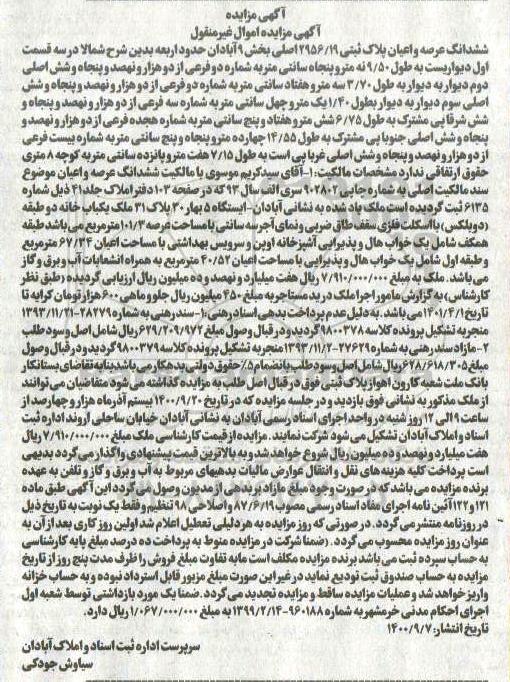 آگهی مزایده
آگهی مزایده اموال غیرمنقول
ششدانگ عرصه و اعیان پلاک ثبتی ۲۹۵۶/۱۹ اصلی بخش ۹ آبادان حدود اربعه بدین شرح شمالا در سه قسمت
اول دیواریست به طول ۹/۵۰ نه متر و پنجاه سانتی متر به شماره دو فرعی از دو هزار و نهصد و پنجاه و شش اصلی
دوم دیوار به دیوار به طول ۳/۷۰ سه متر و هفتاد سانتی متر به شماره دو فرعی از دو هزار و نهصد و پنجاه و شش
اصلی سوم دیوار به دیوار بطول ۱/۴۰ یک متر و چهل سانتی متر به شماره سه فرعی از دو هزار و نهصد و پنجاه و
شش شرقا پی مشترک به طول ۶/۷۵ شش متر و هفتاد و پنج سانتی متر به شماره هجده فرعی از دو هزار و نهصد و
پنجاه و شش اصلی جنوبا پی مشترک به طول ۱۴/۵۵ چهارده متر و پنجاه و پنج سانتی متر به شماره بیست فرعی
از دو هزار و نهصد و پنجاه و شش اصلی غربا پی است به طول ۷/۱۵ هفت متر و پانزده سانتی متر به کوچه ۸ متری
حقوق ارتفاقی ندارد مشخصات مالکیت: ۱-آقای سیدکریم موسوی با مالکیت ششدانگ عرصه و اعیان موضوع
سند مالکیت اصلی به شماره چاپی ۹۰۲۸۰۲ سری الف سال ۹۳ که در صفحه ۱۰۳ دفتر املاک جلد ۴۱ ذیل شماره
۶۱۳۵ ثبت گردیده است ملک یاد شده به نشانی آبادان-ایستگاه ۵ بهار ۳۰ پلاک ۳۱ ملک یکباب خانه دو طبقه
(دوبلکس) با اسکلت فلزی سقف طاق ضربی و نمای آجر سه سانتی با مساحت عرصه ۱۰۱/۳ مترمربع می باشد طبقه
همکف شامل یک خواب هال و پذیرایی آشپزخانه اوپن و سرویس بهداشتی با مساحت اعیان ۶۷/۳۴ مترمربع
و طبقه اول شامل یک خواب هال و پذیرایی با مساحت اعیان ۴۰/۵۲ مترمربع به همراه انشعابات آب و برق و گاز
می باشد. ملک به مبلغ ۷/۹۱۰/۰۰۰/۰۰۰ ریال هفت میلیارد و نهصد و ده میلیون ریال ارزیابی گردیده (طبق نظر
کارشناس) به گزارش مامور اجرا ملک در ید مستاجر به مبلغ ۴۵۰ میلیون ریال جلو و ماهی ۶۰۰ هزار تومان کرایه تا
تاریخ ۱۴۰۱/۴/۱ می باشد. به دلیل عدم پرداخت بدهی اسناد رهنی: ۱-سند رهنی به شماره ۲۸۲۷۹-۱۳۹۳/۱۱/۲۱
منجر به تشکیل پرونده کلاسه ۹۸۰۰۳۷۸ گردید و در قبال وصول مبلغ ۶۲۹/۲۰۹/۹۷۲ ریال شامل اصل و سود طلب
۲-مازاد سند رهنی به شماره ۲۷۶۲۹-۱۳۹۳/۱۱/۲ منجر به تشکیل پرونده کلاسه ۹۸۰۰۳۷۹ گردید و در قبال وصول
مبلغ ۶۲۸/۶۱۸/۳۰۵ ریال شامل اصل و سود طلب بانضمام ۵٪ حقوق دولتی بدهکار می باشد بنا به تقاضای بستانکار
بانک ملت شعبه کارون اهواز پلاک ثبتی فوق در قبال اصل طلب به مزایده گذاشته می شود متقاضیان می توانند
از ملک مذکور به نشانی فوق بازدید و در جلسه مزایده که در تاریخ ۱۴۰۰/۹/۲۰ بیستم آذرماه هزار و چهارصد از
ساعت ۹ الی ۱۲ روز شنبه در واحد اجرای اسناد رسمی آبادان به نشانی آبادان خیابان ساحلی اروند اداره ثبت
اسناد و املاک آبادان تشکیل می شود شرکت نمایند. مزایده از قیمت کارشناسی ملک مبلغ ۷/۹۱۰/۰۰۰/۰۰۰ ریال
هفت میلیارد و نهصد و ده میلیون ریال شروع خواهد شد و به بالاترین قیمت پیشنهادی واگذار می گردد بدیهی
است پرداخت کلیه هزینه های نقل و انتقال عوارض مالیات بدهیهای مربوط به آب و برق و گاز و تلفن به عهده
برنده مزایده می باشد که در صورت وجود مبلغ مازاد بر بدهی از مدیون وصول می گردد این آگهی طبق ماده
۱۲۱ و ۱۲۲ آئین نامه اجرای مفاد اسناد رسمی مصوب ۸۷/۶/۱۹ و اصلاحی ۹۸ تنظیم و فقط یک نوبت به تاریخ ذیل
در روزنامه منتشر می گردد. در صورتی که روز مزایده به هر دلیلی تعطیل اعلام شد اولین روز کاری بعد از آن به
عنوان روز مزایده محسوب می گردد. (ضمنا شرکت در مزایده منوط به پرداخت ده درصد مبلغ پایه کارشناسی
به حساب سپرده ثبت می باشد برنده مزایده مکلف است مابه تفاوت مبلغ فروش را ظرف مدت پنج روز از تاریخ
مزایده به حساب صندوق ثبت تودیع نماید در غیر این صورت مبلغ مزبور قابل استرداد نبوده و به حساب خزانه
واریز خواهد شد و عملیات مزایده ساقط و مزایده تجدید می گردد. ضمنا یک مورد بازداشتی توسط شعبه اول
اجرای احکام مدنی خرمشهر به شماره ۹۶۰۱۸۸-۱۳۹۹/۲/۱۴ به مبلغ ۱/۰۶۷/۰۰۰/۰۰۰ ریال دارد.
تاریخ انتشار: ۱۴۰۰/۹/۷
سرپرست اداره ثبت اسناد و املاک آبادان
سیاوش جودکی